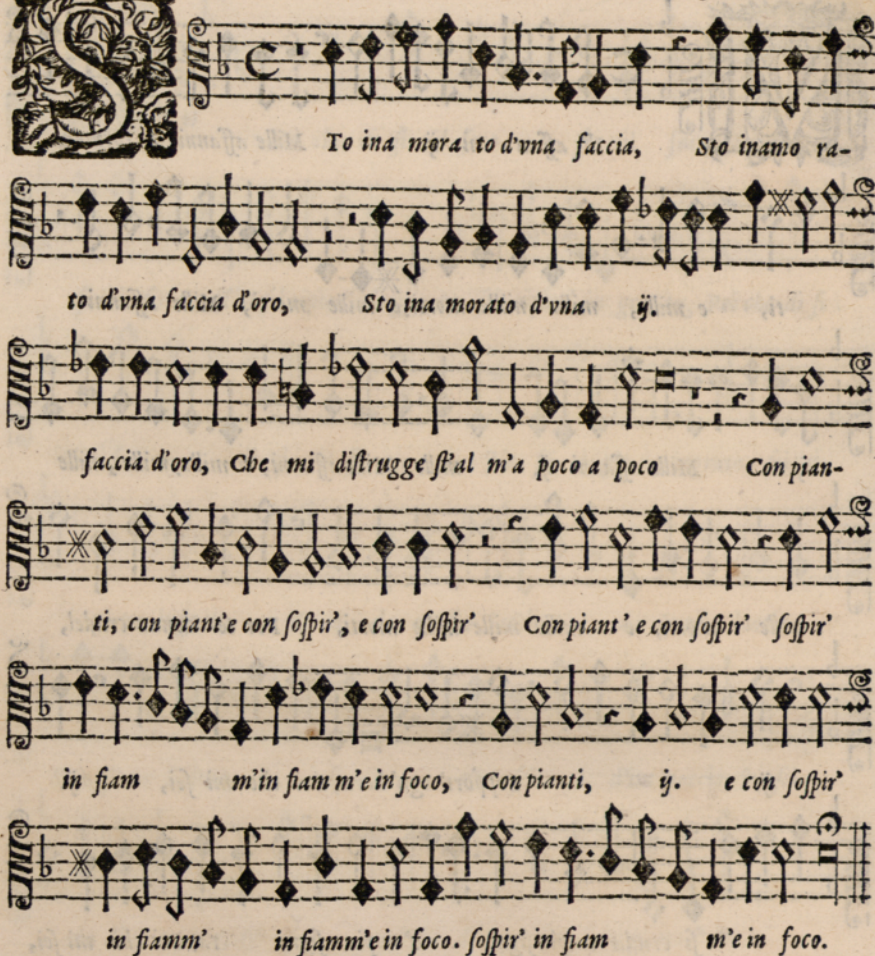 STo ina mora to d'vna faccia, Sto inamo ra-
to d'vna faccia d'oro, Sto ina morato d'vna ij.
faccia d'oro, Che mi diſtrugge ſt'al m'a poco a poco Con pian-
ti, con piant'e con ſoſpir', e con ſoſpir' Con piant' e con ſoſpir' ſoſpir'
in fiam m'in fiam m'e in foco, Con pianti, ij. e con ſoſpir'
in fiamm' in fiamm'e in foco. ſoſpir' in fiam m'e in foco.